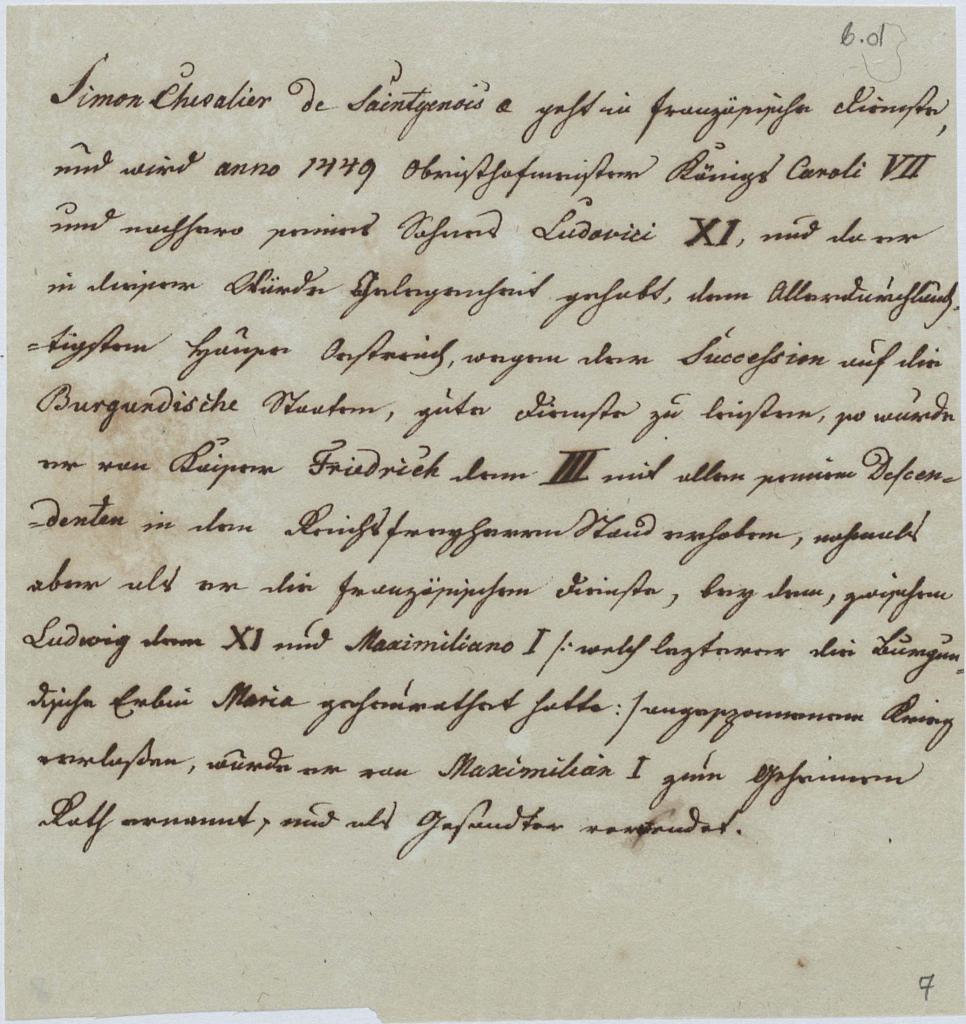 6. d
Simon Chevalier de Saintgenois &c geht in französische Dienste,
und wird anno 1449 Obristhofmeister Königs Caroli VII
und nachhero seines Sohnes Ludovici XI, und da er
in dieser Würde Gelegenheit gehabt, dem Allerdurchlauch-
=tigsten Hause Oestreich, wegen der Succession auf die
Burgundische Staaten, gute Dienste zu leisten, so wurde
er von Kaiser Friedrich dem III mit allen seinen Descen=
=denten in den Reichsfreyherrn Stand erhoben, nochmals
aber als er die französischen Dienste, bey dem, zwischen
Ludwig dem XI und Maximiliano I /: welch lezterer die Burgun=
dische Erbin Maria geheurathet hatte :/ angesponnenen Krieg
verlaßen, wurde er von Maximilian I zum Geheimen
Rath ernannt, und als Gesandter verwendet.
7